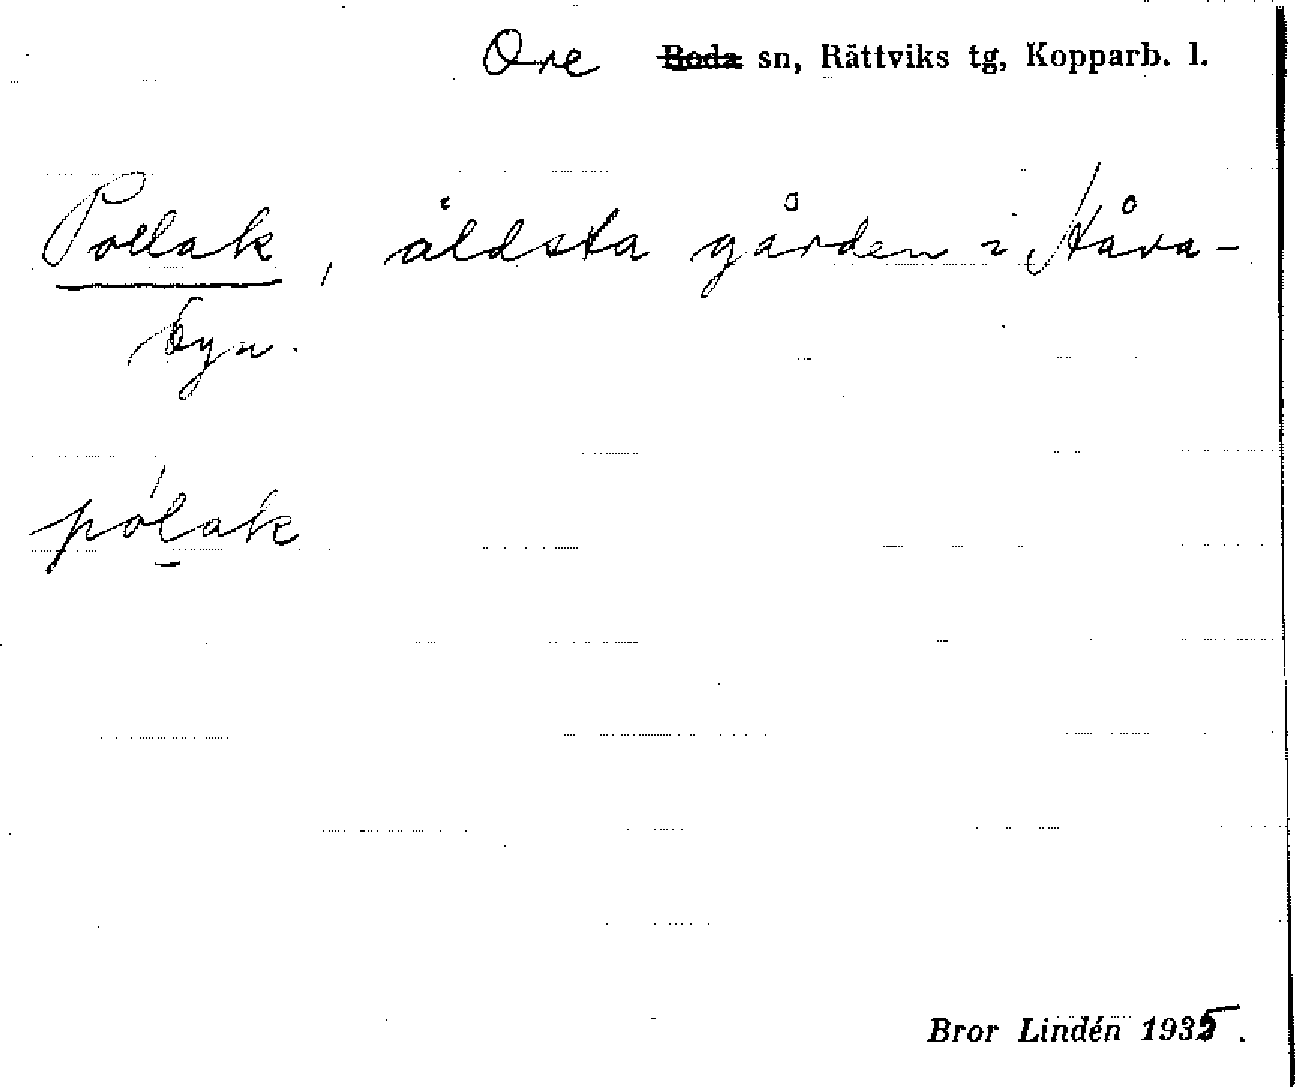 Ore Boda sn, Rättviks tg, Kopparb. l.
Pollak, äldsta gården i Håva-
byn.
pólak
Bror Lindén 1935.